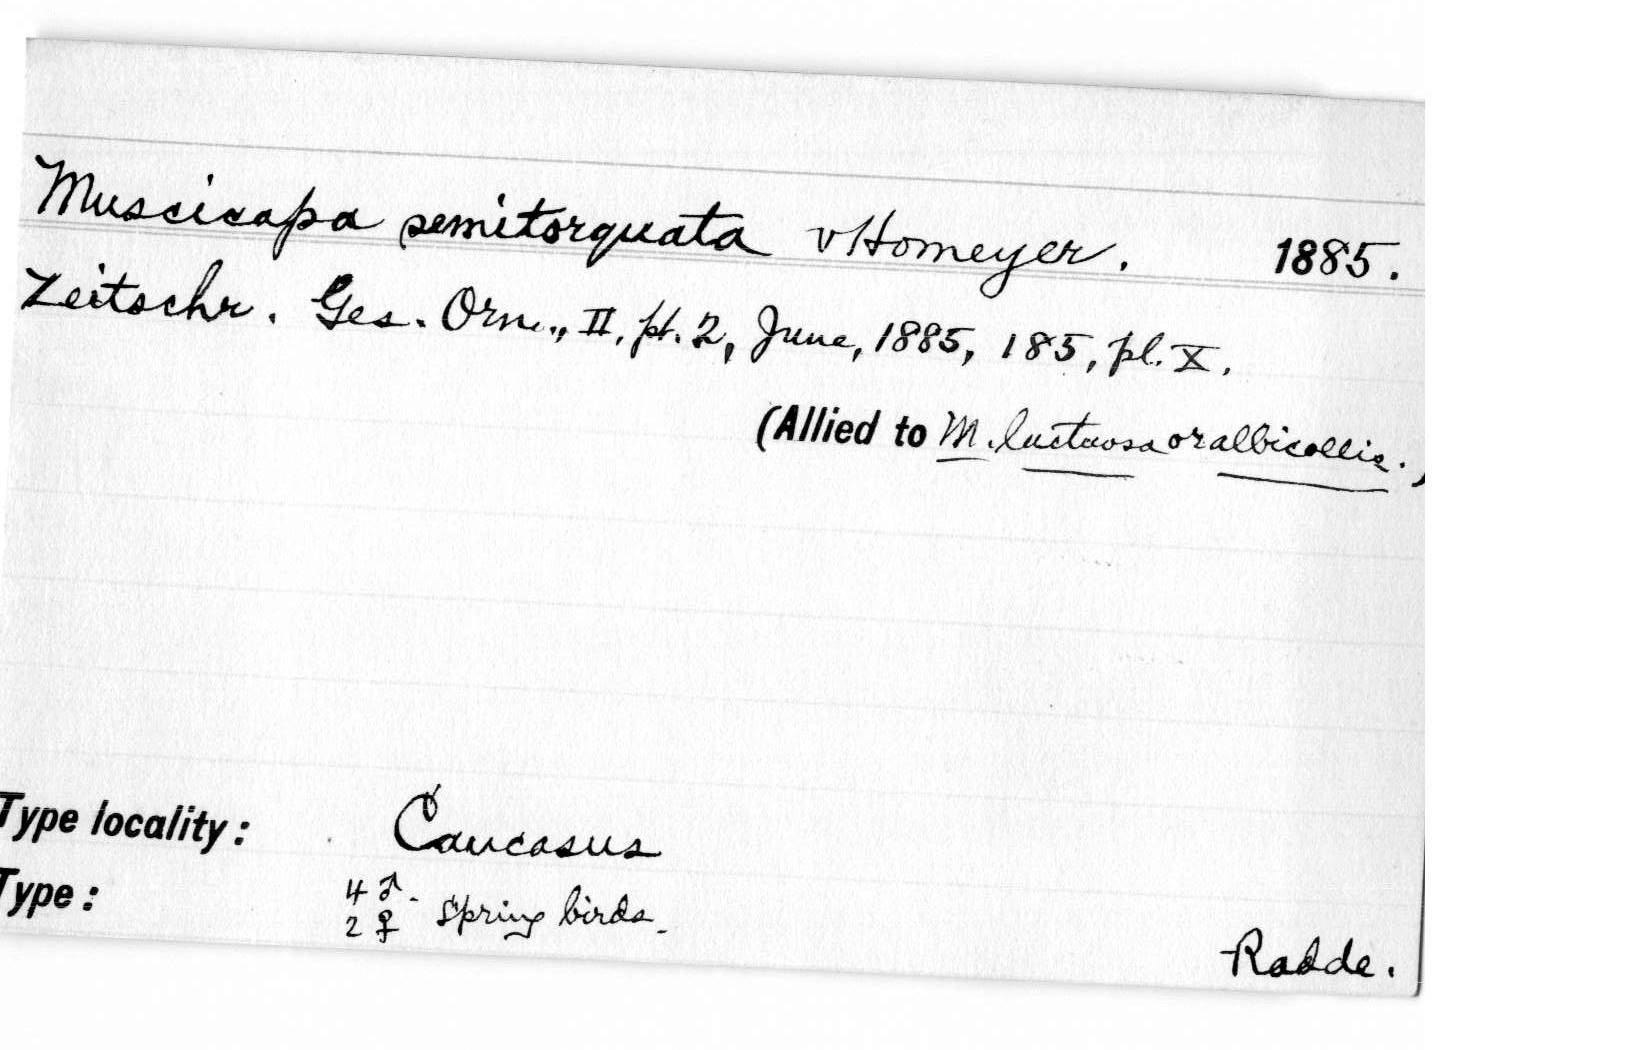 Muscicapa semitorquata vHomeyer. 1885.
Zeitschr. Ges. Orn., II, pt. 2, June, 1885, 185, pl. X.
(Allied to M. luctuosa or albicollis.)
Type locality: Caucasus
Type: 4 ♂.
2 ♀ Spring birds.
Radde.